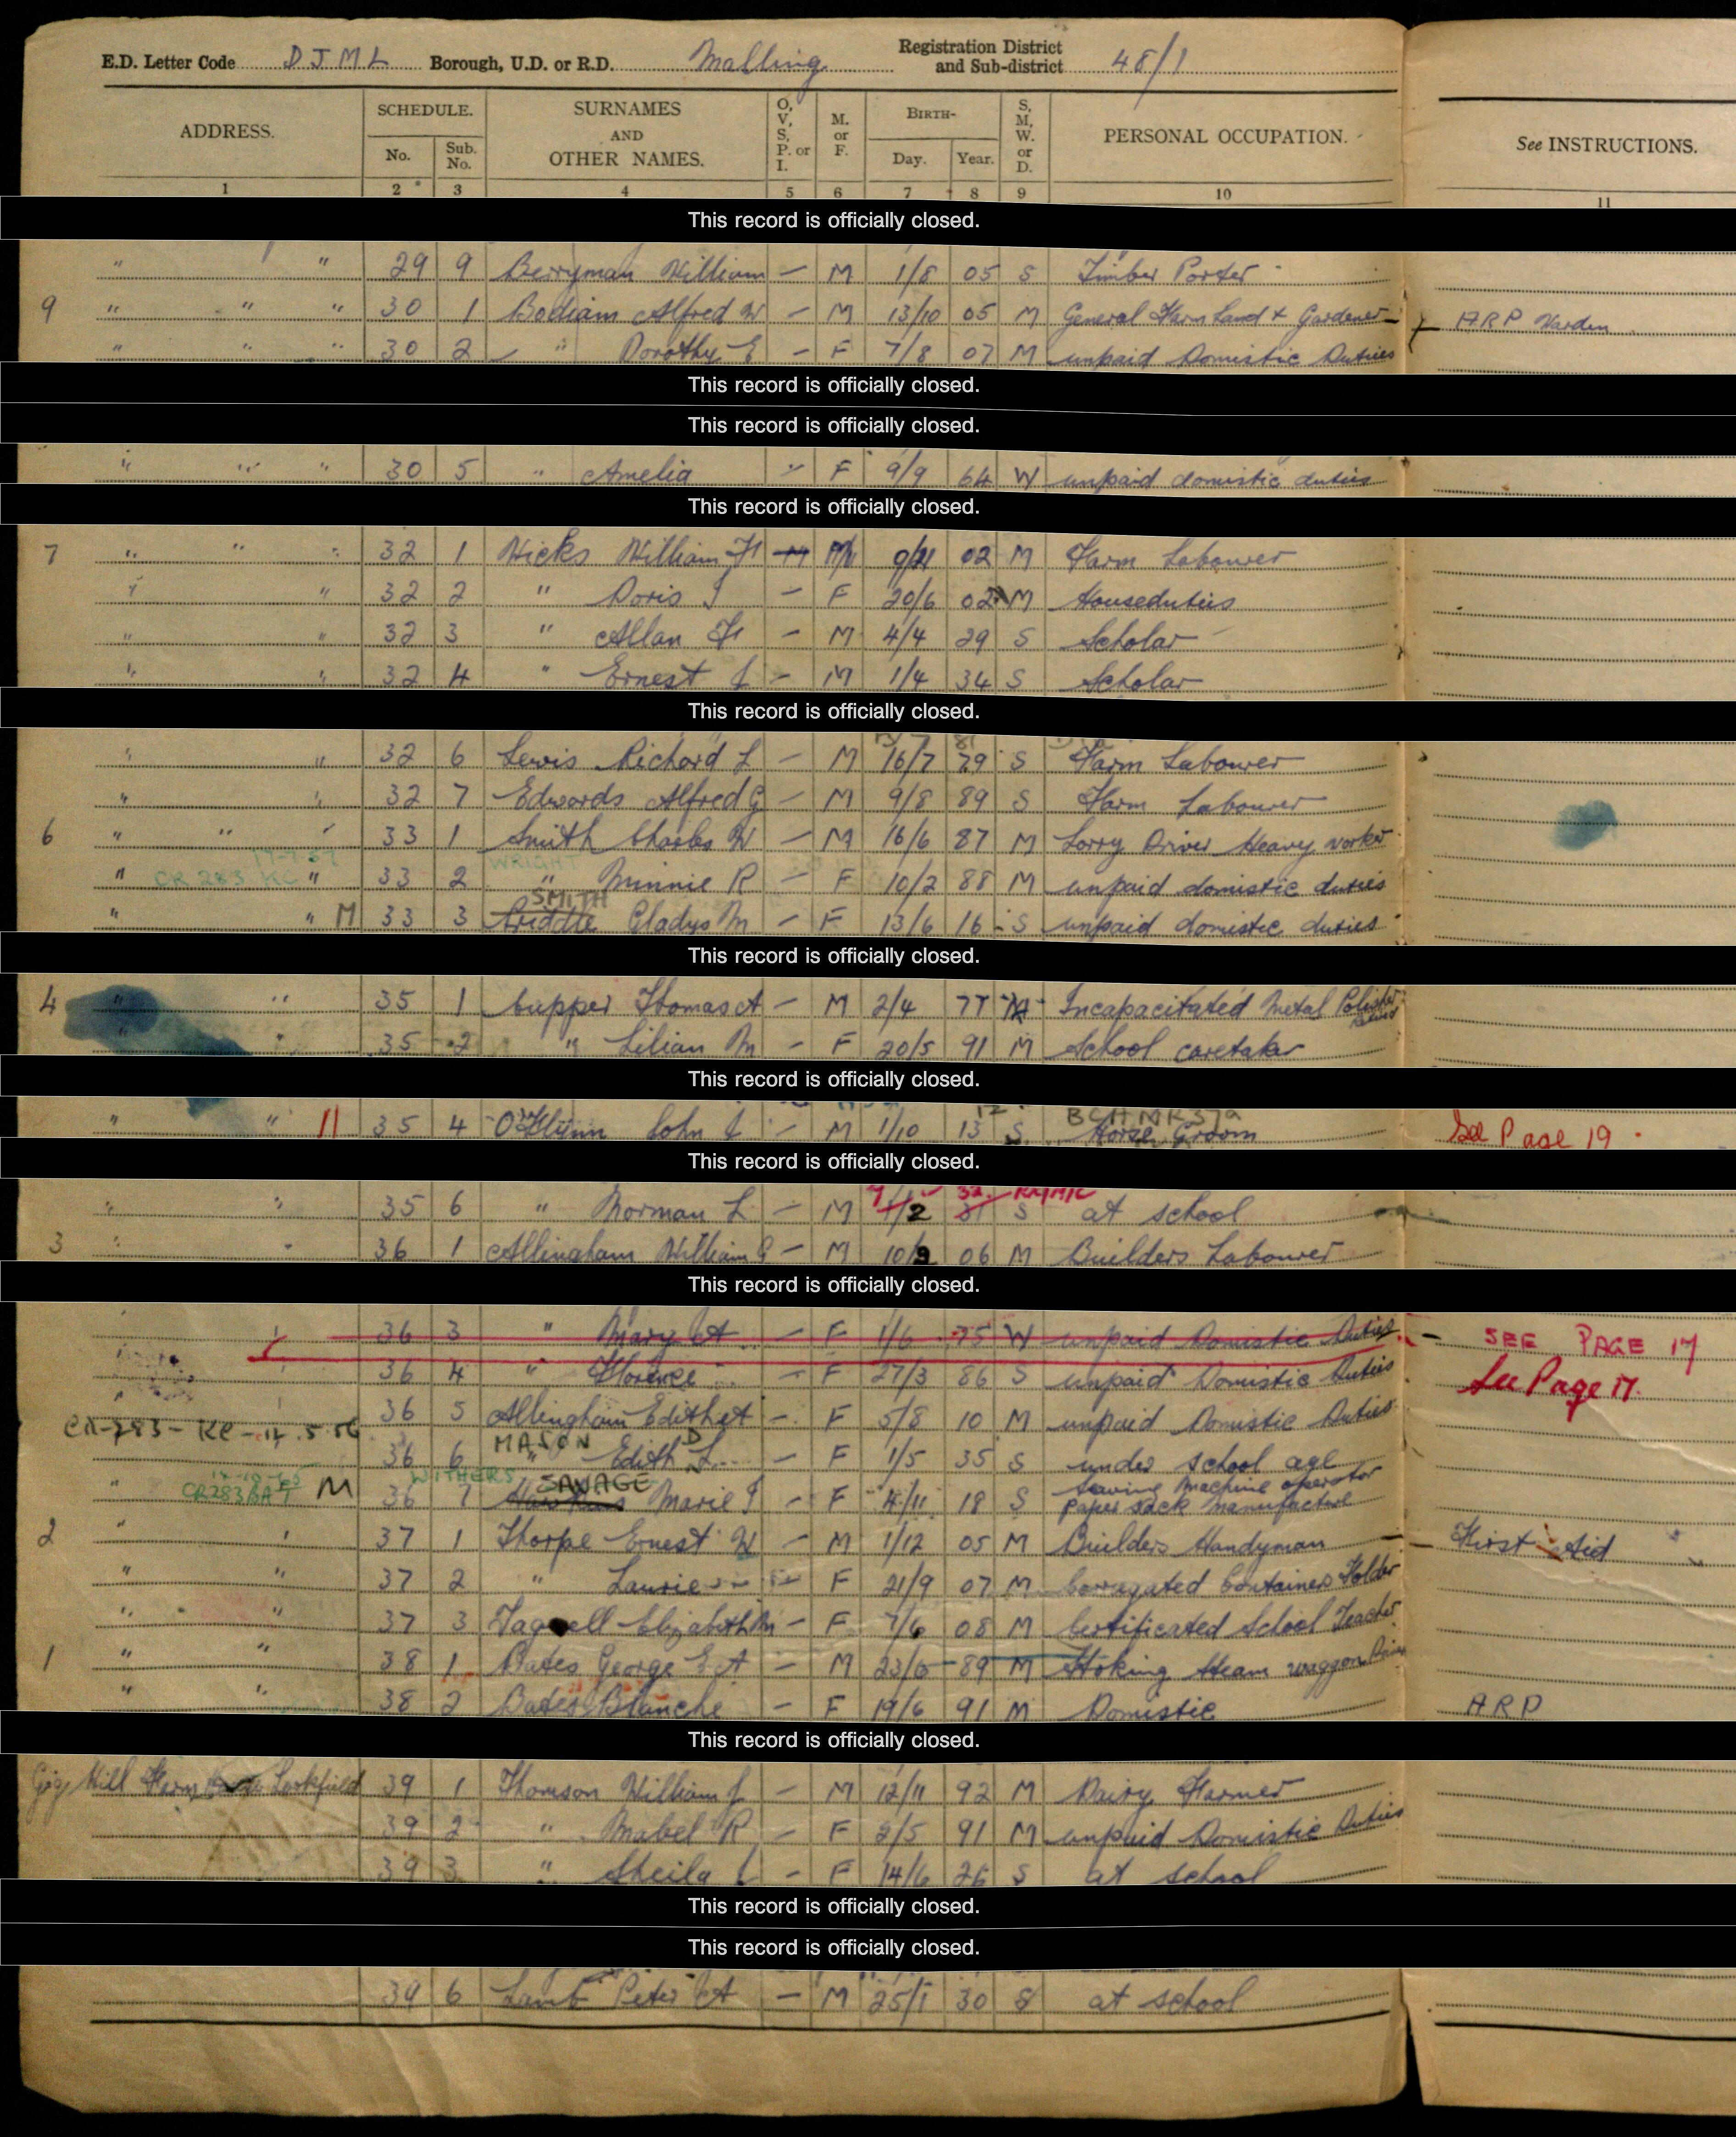 E.D. Letter Code DJML Borough, U.D. or R.D. Malling Registration District and Sub-district 48/1
ADDRESS. SCHEDULE. No. Sub. No. SURNAMES AND OTHER NAMES. O, V, S, P. or I. M. or F. BIRTH- Day. Year. S, M, W. or D. PERSONAL OCCUPATION. See INSTRUCTIONS.
1 2 3 4 5 6 7 8 9 10 11
This record is officially closed.
" " 29 9 Berryman William - M 1/8 05 S Timber Porter
9 " " " 30 1 Bodiam Alfred W - M 13/10 05 M General Farm Land & Gardener ARP Warden
" " " 30 2 " Dorothy E - F 7/8 07 M unpaid Domistic Duties
This record is officially closed.
This record is officially closed.
" " " 30 5 " Amelia - F 9/9 64 W unpaid domistic duties
This record is officially closed.
7 " " " 32 1 Hicks William H M 02 M Farm Labourer
" " 32 2 " Doris I - F 20/6 02 M Houseduties
" " 32 3 " Allan H - M 4/4 29 S Scholar
" " 32 4 " Ernest J - M 1/4 34 S Scholar
This record is officially closed.
" " 32 6 Lewis Richard L - M 16/7 79 S Farm Labourer
" " 32 7 Edwards Alfred G - M 9/8 89 S Farm Labourer
6 " " " 33 1 Smith Charles W - M 16/6 87 M Lorry Driver Heavy worker
WRIGHT
" CR 283 KC " 33 2 " Minnie R - F 10/2 88 M unpaid domistic duties
SMITH
" " M 33 3 Criddle Gladys M - F 13/6 16 S unpaid domistic duties
This record is officially closed.
4 " " 35 1 Cupper Thomas A - M 2/4 77 M Incapacitated Metal Polisher
" 35 2 " Lilian M - F 20/5 91 M School caretaker
This record is officially closed.
" " 11 35 4 O'Flynn John J - M 1/10 13 S Horse Groom See Page 19
This record is officially closed.
" " 35 6 " Norman L - M S at school
3 " " 36 1 Allingham William G - M 10/9 06 M Builders Labourer
This record is officially closed.
36 3 " Mary A - F 1/6 75 W unpaid Domistic Duties - SEE PAGE 17
36 4 " Florence - F 27/3 86 S unpaid Domistic Duties See Page 17.
36 5 Allingham Edith A - F 5/8 10 M unpaid Domistic Duties
CR-283-KC-14.5.56 MASON D
36 6 " Edith L - F 1/5 35 S under school age
WITHERS SAVAGE
" M 36 7 Marie J - F 4/11 18 S Sewing Machine operator paper sack manufacture
2 " " 37 1 Thorpe Ernest W - M 1/12 05 M Builders Handyman - First Aid
" " 37 2 " Laurie - F 21/9 07 M Corragated Containers Folder
" " 37 3 Elizabeth M - F 7/6 08 M Certificated School Teacher
1 " " 38 1 Bates George E A - M 23/6 89 M Stoking Steam waggon
" " 38 2 Bates Blanche - F 19/6 91 M Domistic ARP
This record is officially closed.
Gig Hill Farm Larkfield 39 1 Thomson William J - M 12/11 92 M Dairy Farmer
39 2 " Mabel R - F 2/5 91 M unpaid Domistic Duties
39 3 " Sheila J - F 14/6 26 S at school
This record is officially closed.
This record is officially closed.
39 6 Lamb Peter A - M 25/1 30 S at school